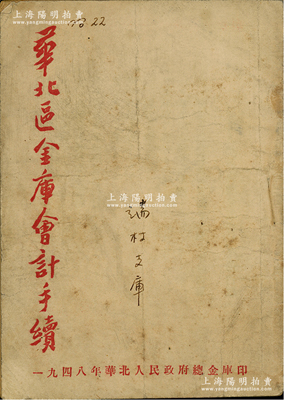 上海陽明拍賣
www.yangmingauction.com
22
華北區金庫會計手續
上海陽明拍賣
www.yangmingauction.com
村支庫
一九四八年華北人民政府總金庫印
上海陽明拍賣
www.yangmingauction.com